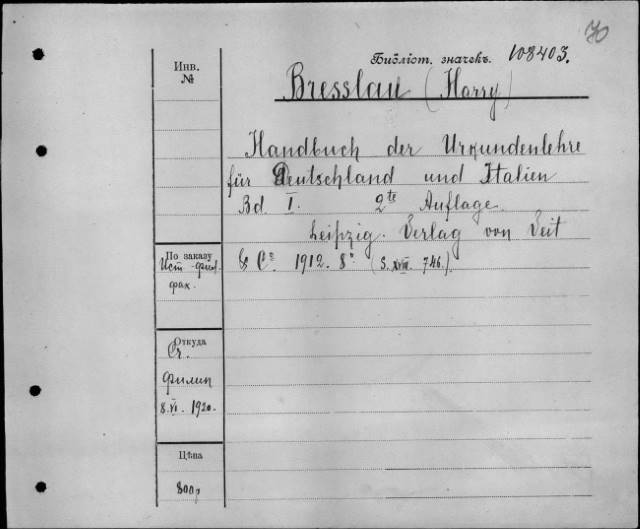 70
Библіот. значекъ. 108403.
Инв.
№
Bresslau (Harry)
Handbuch der Urkundenlehre
für Deutschland und Italien
Bd. I. 2te Auflage.
Leipzig. Verlag von Veit
& Co. 1912. 8° (S. XVIII. 746.).
По заказу
Ист.-фил.
фак.
Откуда
От.
Филип
8.VI. 1920.
Цѣна
800р